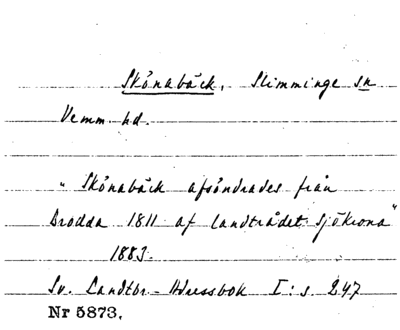 Skönabäck, Slimminge sn
Vemm. hd.
"Skönabäck afsöndrades från
Brodda 1811 af landtrådet Sjökrona"
1883.
Sv. Landtbr-Adressbok I: s. 247
Nr 5873.